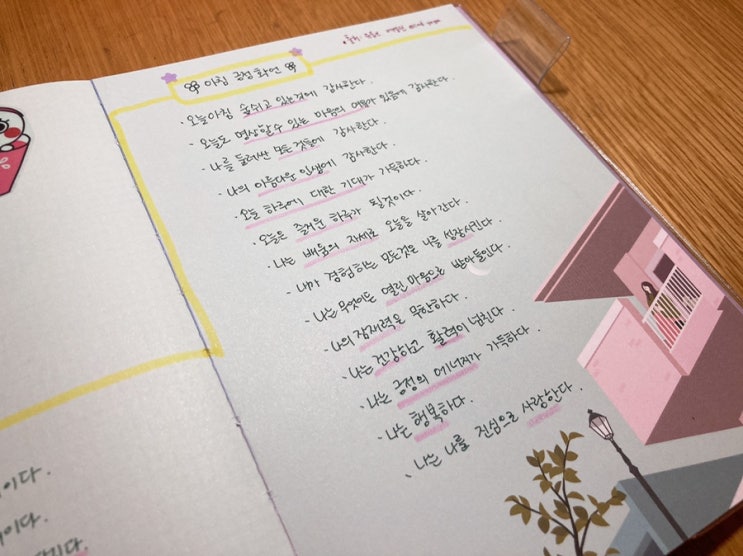 아침 긍정 확언
· 오늘아침 숨쉬고 있는것에 감사한다.
· 오늘도 명상할수 있는 마음의 여유가 있음에 감사한다.
· 나를 둘러싼 모든 것들에 감사한다.
· 나의 아름다운 인생에 감사한다.
· 오늘 하루에 대한 기대가 가득하다.
· 오늘은 즐거운 하루가 될것이다.
· 나는 배움의 자세로 오늘을 살아간다.
· 내가 경험하는 모든것은 나를 성장시킨다.
· 나는 무엇이든 열린 마음으로 받아들인다.
· 나의 잠재력은 무한하다.
· 나는 건강하고 활력이 넘친다.
· 나는 긍정의 에너지가 가득하다.
· 나는 행복하다.
· 나는 나를 진심으로 사랑한다.
이다.
이다.